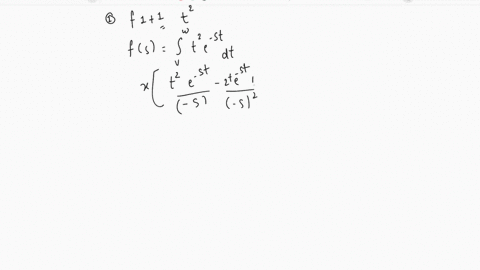 ② f1+1 = t²
f(s) = ∫_v^w t² e^{-st} dt
x[ t² e^{-st}/(-s) - 2t e^{-st} 1/(-s)²